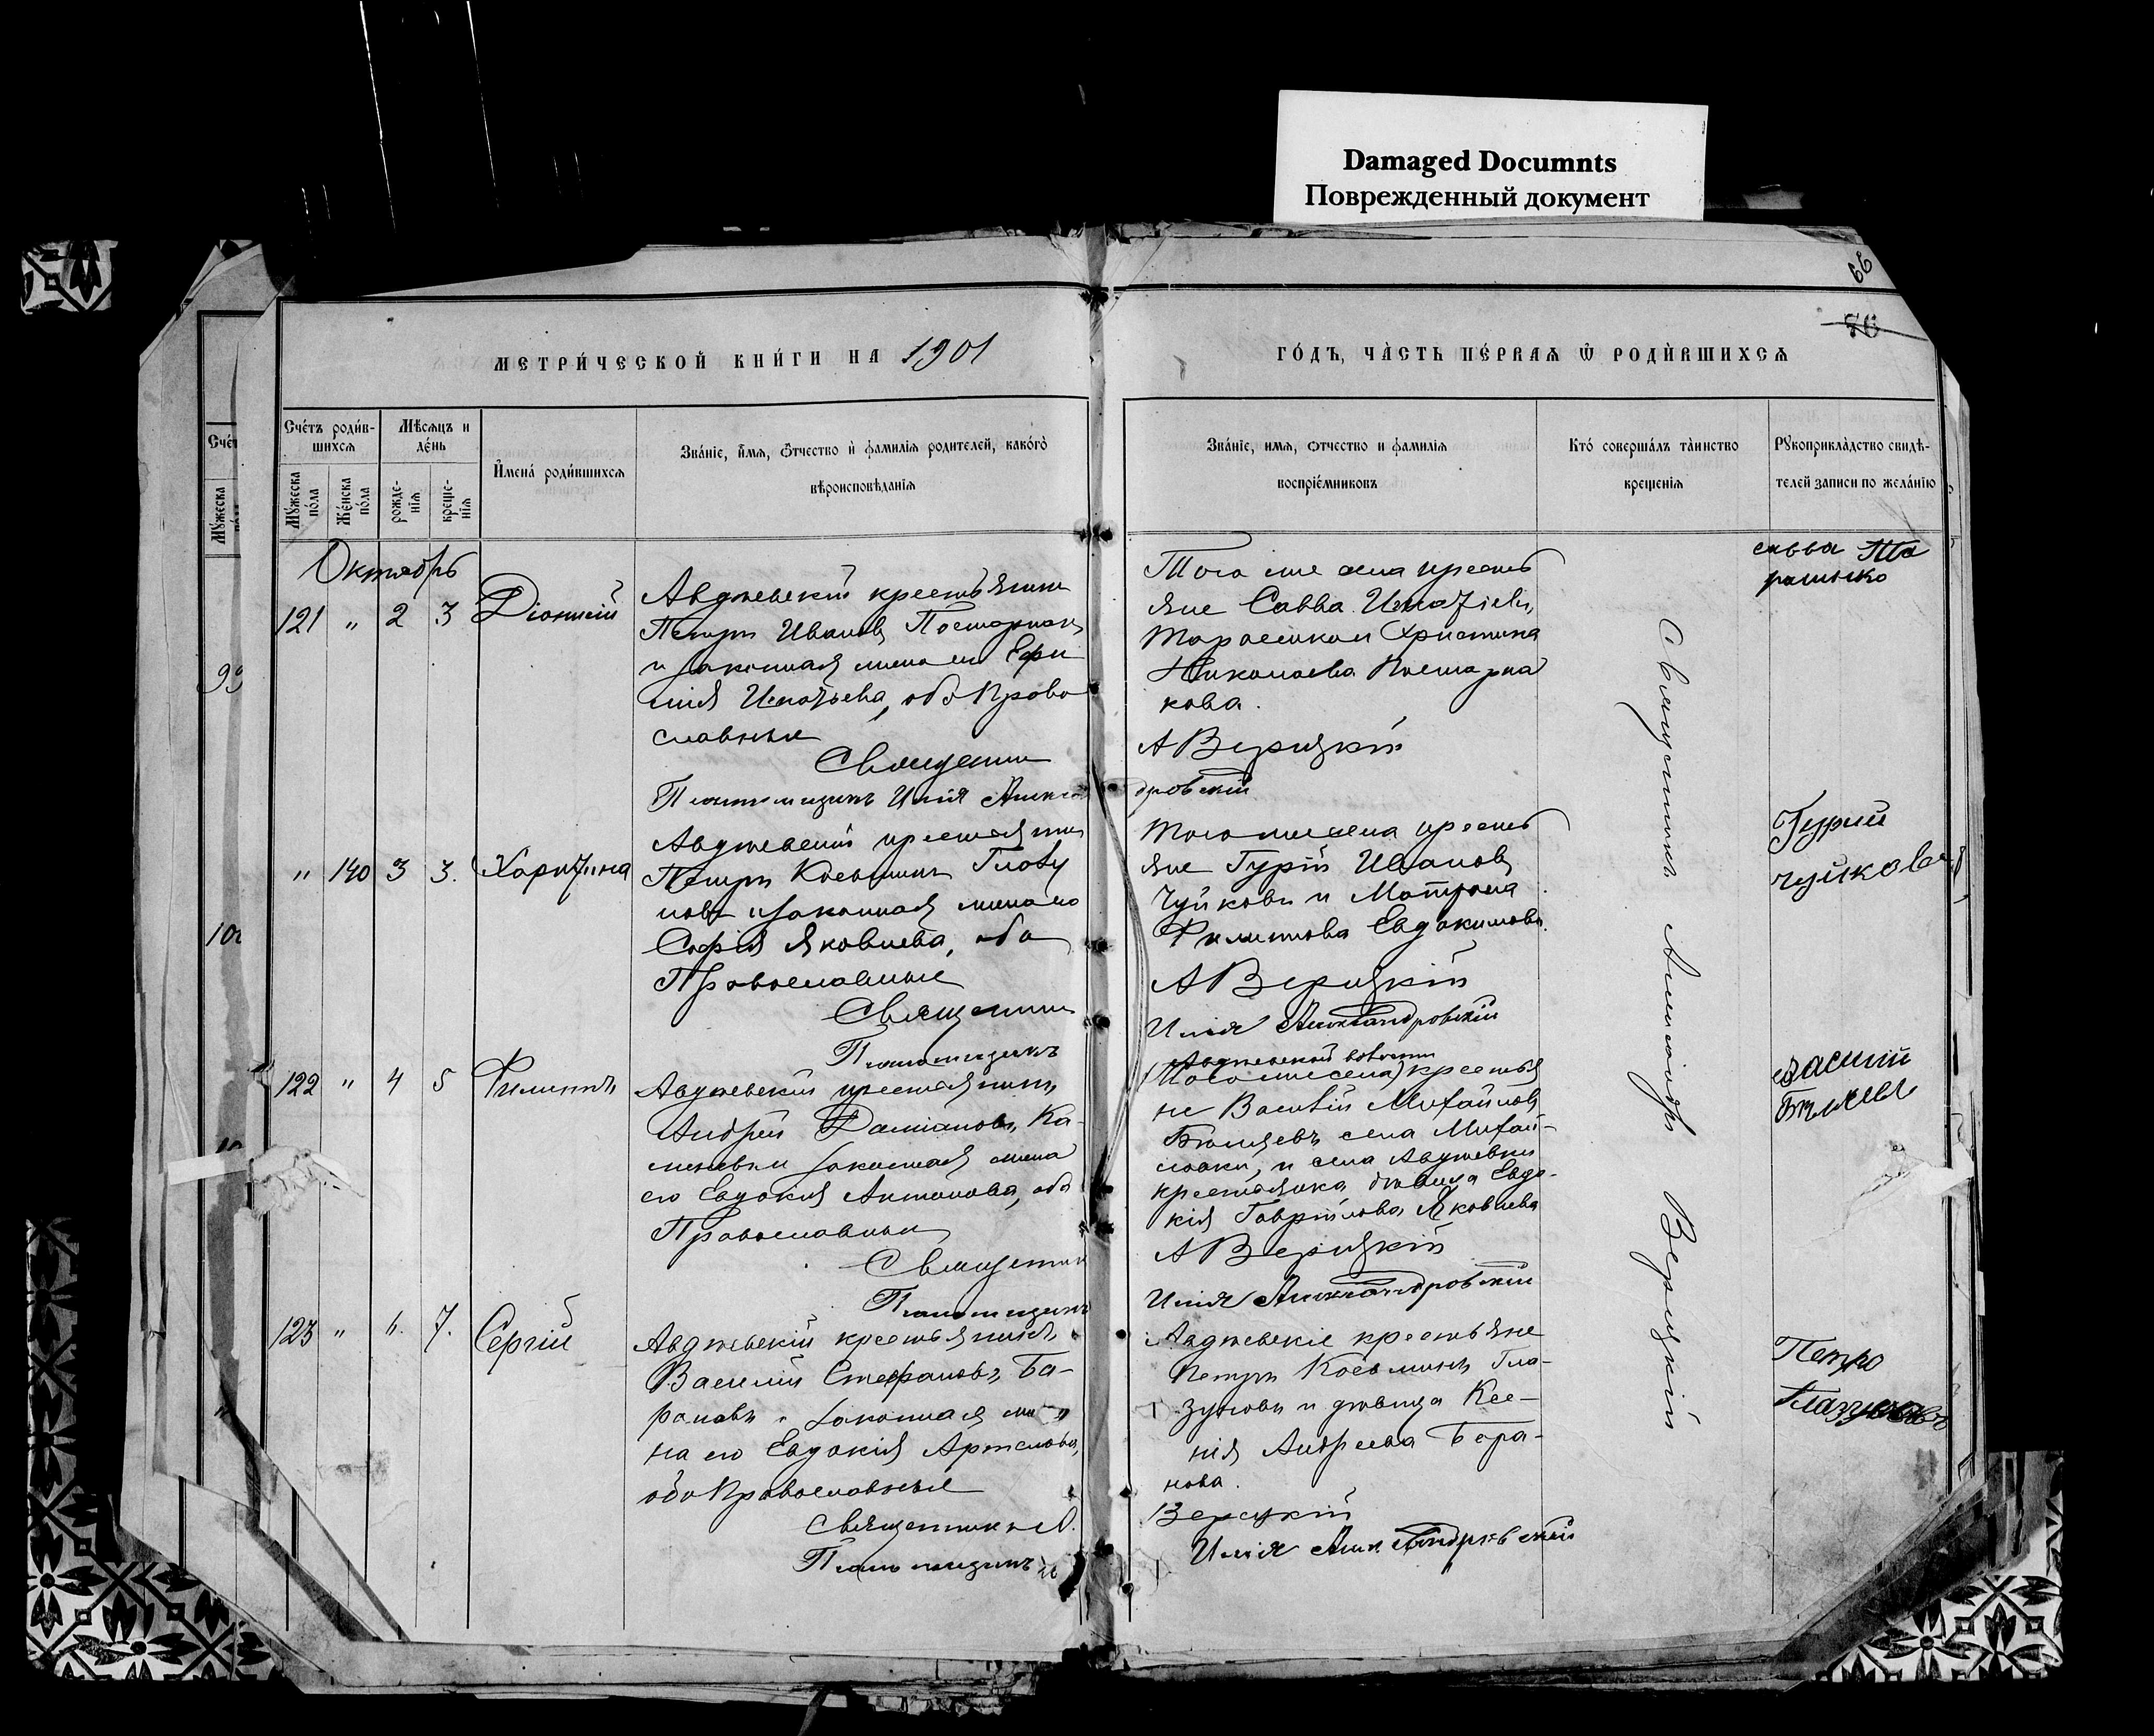 Damaged Documnts
Поврежденный документ
66
76
МЕТРИ́ЧЕСКОЙ КНИ́ГИ НА 1901
ГО́ДЪ, ЧА̀СТЬ ПЕ́РВАѦ Ѿ РОДИ́ВШИХСѦ
Сче́тъ роди́в-
шихсѧ
Мѣ́сѧцъ и
де́нь
Мꙋ́жеска
по́ла
Же́нска
по́ла
рожде-
нїѧ
креще-
нїѧ
И҆мена́ роди́вшихсѧ
Зва́нїе, и҆́мѧ, ѻ҆́тчество и҆ фами́лїѧ роди́телей, како́гѡ
вѣроисповѣ́данїѧ
Зва́нїе, имѧ, ѻтчество и фамилїѧ
воспрїе́мниковъ
Кто́ соверша́лъ та̀инство
крещенїѧ
Рꙋкоприкла́дство свидѣ-
телей записи по жела́нїю
Октябрь
121 " 2 3 Діонисій
Авдѣевскій крестьянинъ
Петръ Ивановъ
и законная жена его Ефи
мія Игнатьева, оба Право
славные
Священникъ
Псаломщикъ Илія Алексан
Того же села кресть
яне Савва Игнатіевъ
Христина
Николаева
кова.
А Верицкій
дровскій
савва Та
расенко
" 140 3 3. Харитина
Авдѣевскій крестьянинъ
Петръ Косьминъ Глазу
новъ и законная жена его
Софія Яковлева, оба
Православные
Священникъ
Псаломщикъ
того же села кресть
яне Гурій Ивановъ
Чуйковъ и Матрона
Филиппова Евдокимова.
А Верицкій
Илія Александровскій
Гурий
чуйковъ
122 " 4 5 Филиппъ
Авдѣевскій крестьянинъ
Андрей Даміановъ Ка-
законная жена
его Евдокія Антонова, оба
Православные
Священникъ
Псаломщикъ
Авдѣевской волости
(Того же села) крестья
не Василій Михайловъ
села Михай-
ловки, и села Авдѣевки
крестьянка дѣвица Евдо-
кія Гаврілова Яковлева
А Верицкій
Илія Александровскій
Василий
123 " 6. 7. Сергій
Авдѣевскій крестьянинъ
Василій Стефановъ Ба-
рановъ и законная же
на его Евдокія Артемова,
оба Православные
Священникъ А.
Псаломщикъ
Авдѣевскіе крестьяне
Петръ Косьминъ Гла-
зуновъ и дѣвица Ксе-
нія Андреева Бара-
нова.
Верицкій
Илія Александровскій
Петро
Глазуновъ
Священникъ Александръ Верицкій